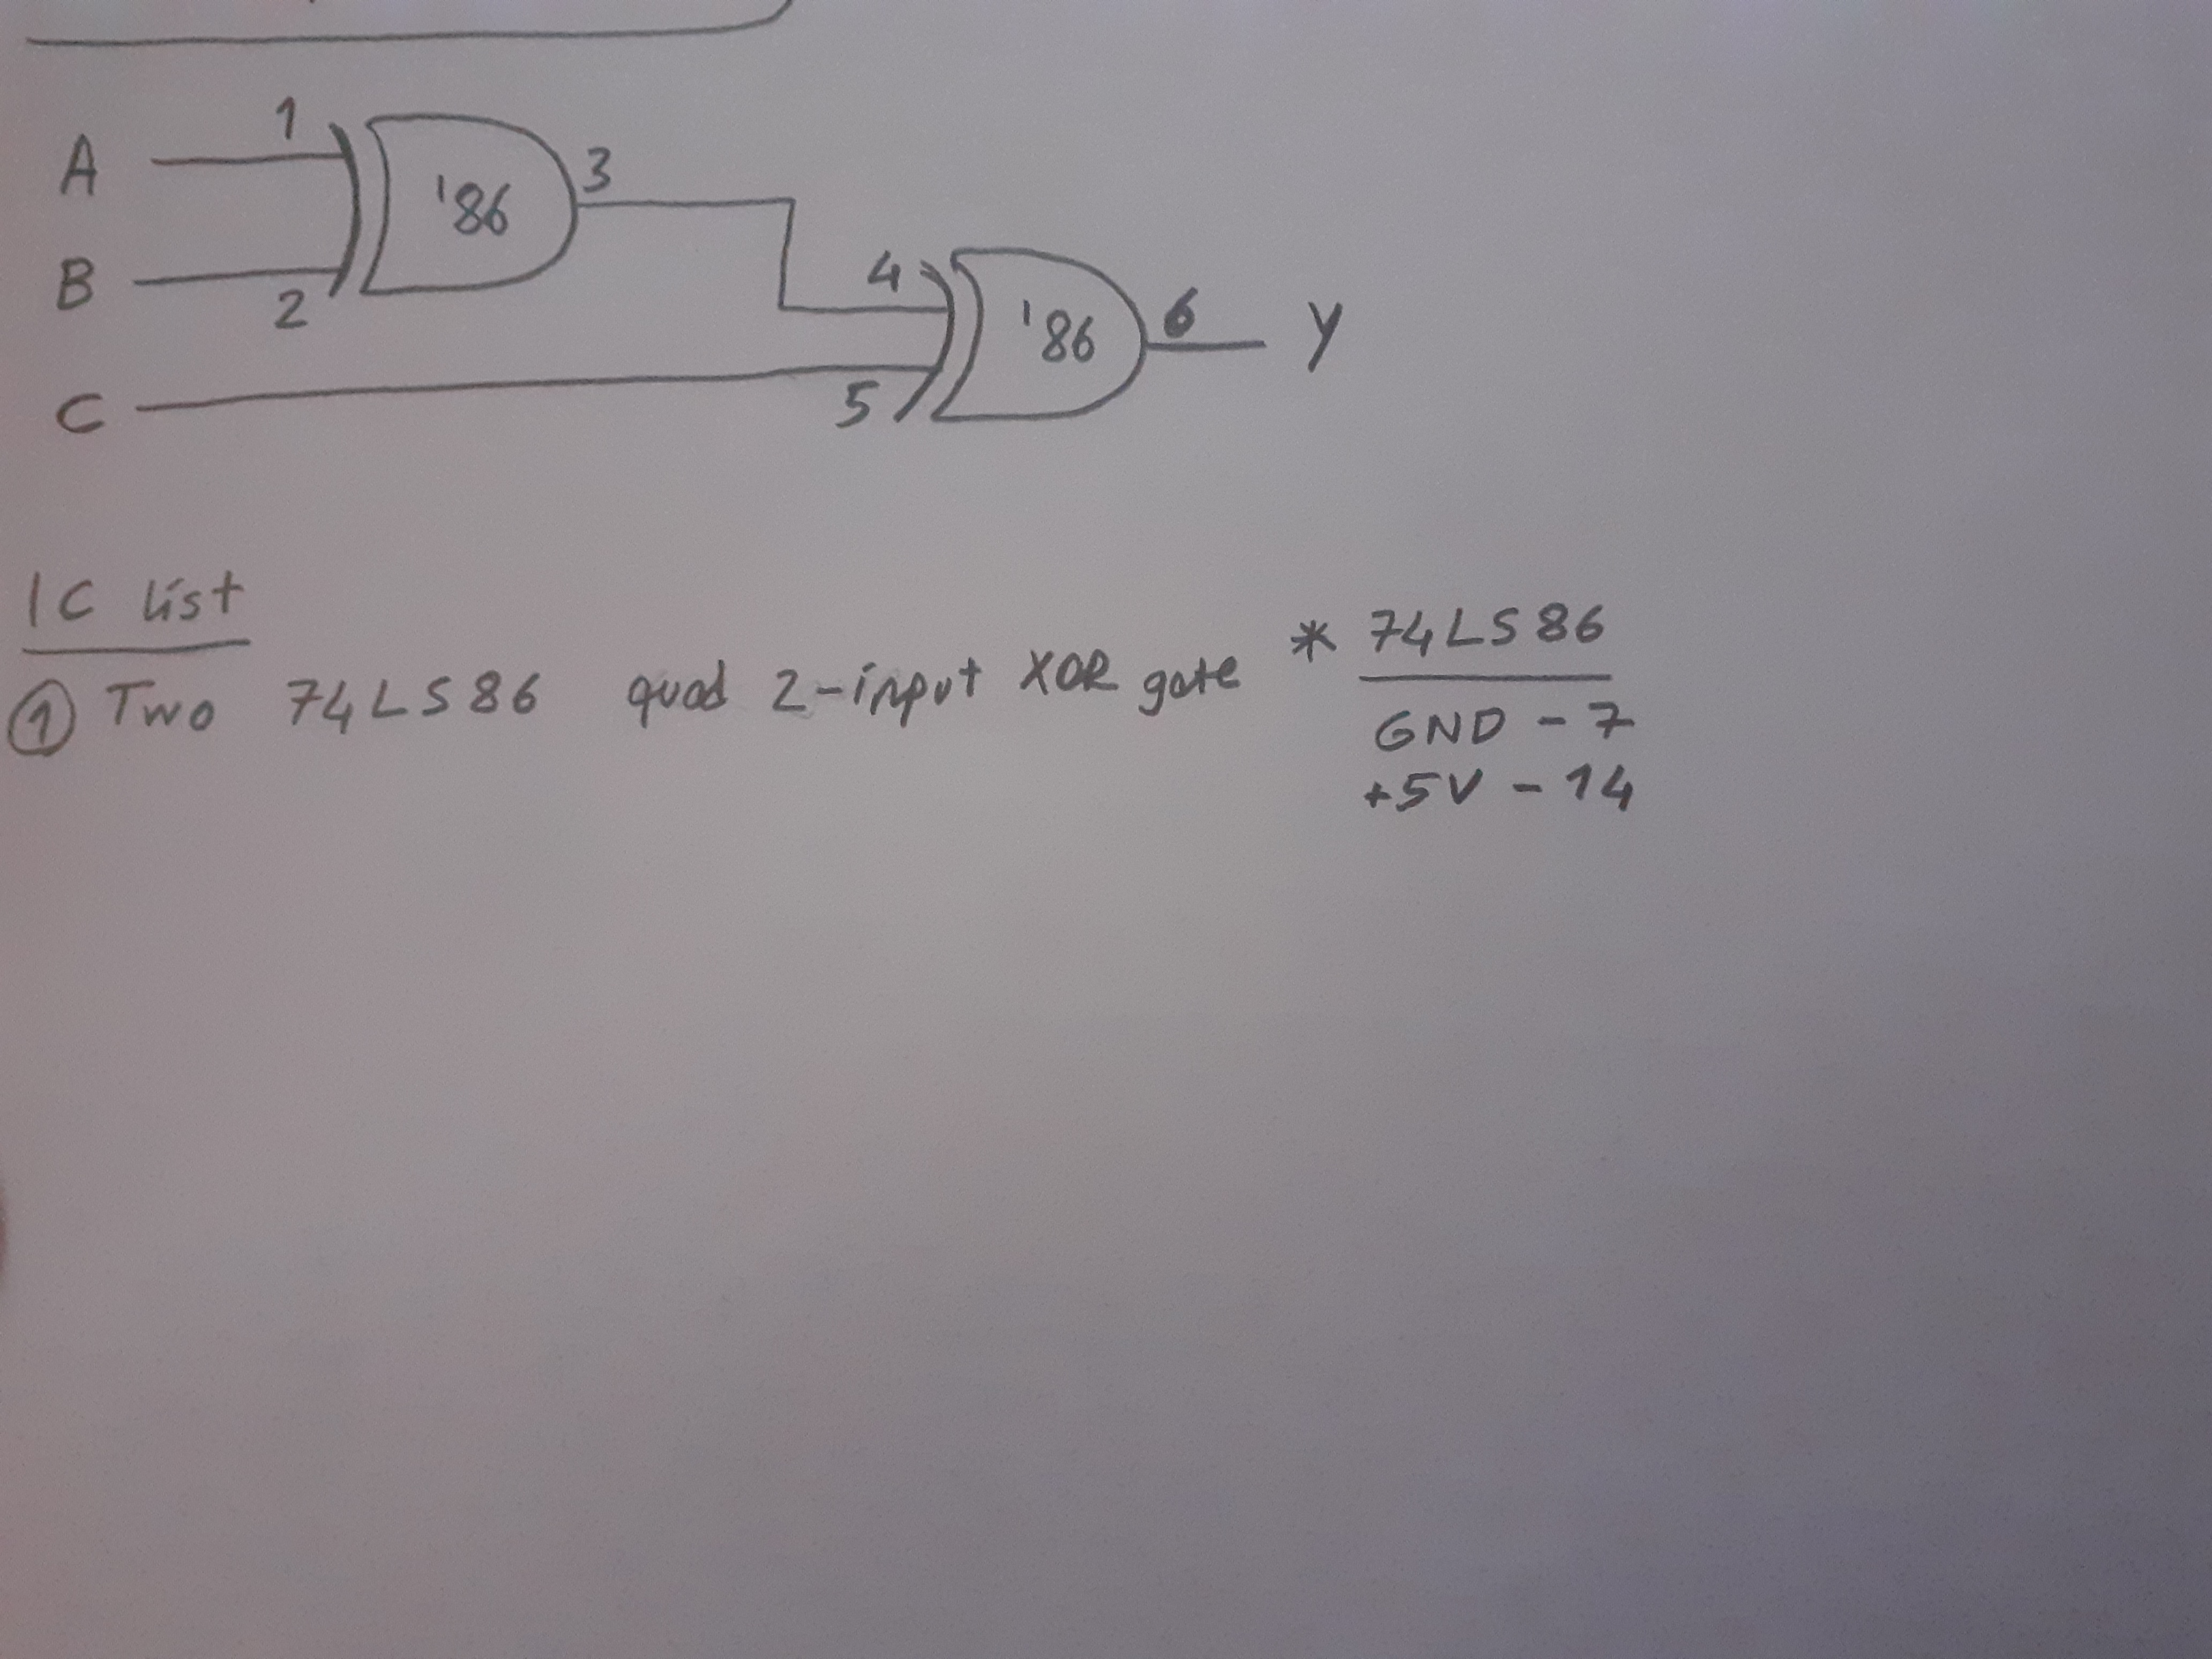 A
1
'86
3
B
2
4
'86
6
Y
C
5
IC list
① Two 74LS86 quad 2-input XOR gate
* 74LS86
GND - 7
+5V - 14